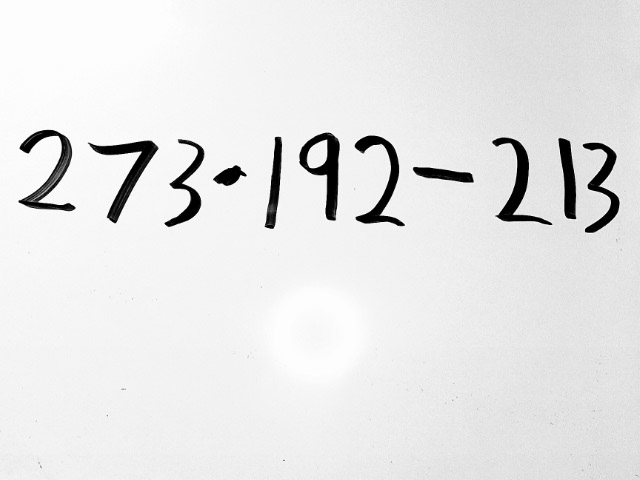 273·192-213